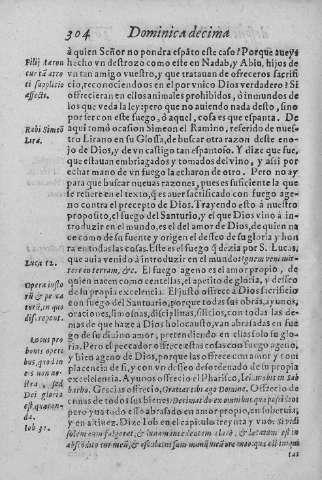 304 Dominica decima
à quien Señor no pondra espãto este caso? Porque aueys
hecho vn destrozo como este en Nadab, y Abiu, hijos de
vn tan amigo vuestro, y que tratauan de ofreceros sacrifi
cio, reconociendoos en el por vnico Dios verdadero? Si
ofrecieran en ellos animales prohibidos, ò inmundos de
los que veda la ley: pero que no auiendo nada desto, sino
por ser con este fuego, ò aquel, cosa es que espanta. De
aqui tomò ocasion Simeon el Ramino, referido de nues
tro Lirano en su Glossa, de buscar otra razon deste eno-
jo de Dios, y de vn castigo tan espantoso. Y dize que fue,
que estauan embriagados y tomados del vino, y assi por
echar mano de vn fuego la echaron de otro. Pero no ay
para que buscar nueuas razones, pues es suficiente la que
se refiere en el texto, q̃ es auer sacrificado con fuego age
no contra el precepto de Dios. Trayendo esto à nuestro
proposito, el fuego del Santurio, y el que Dios vino à in-
troduzir en el mundo, es el del amor de Dios, de quien na
ce como de su fuente y origen el desseo de su gloria y hon
ra en todas las cosas. Este es el fuego q̃ dezia por S. Lucas,
que auia venido à introduzir en el mundo: Ignem veni mit-
tere in terram, &c. El fuego ageno es el amor propio, de
quien nacen como centellas, el apetito de gloria, y desseo
de la propia excelencia. El justo ofrece à Dios sacrificio
con fuego del Santuario, porque todas sus obras, ayunos,
oraciones, limosnas, disciplinas, silicios, con todas las de-
mas de que haze à Dios holocausto, van abrasadas en fue
go de su diuino amor, pretendiendo en ellas solo su glo-
ria. Pero el pecador ofrece estas cosas con fuego ageno,
y bien ageno de Dios, porque las ofrece con amor y com
placencia de si, y con vn desseo desordenado de su propia
excelencia. Ayunos ofrecia el Phariseo,
Gracias ofrecia, Gratias tibi ago Domine. Ofrecio de
cimas de todos sus bienes: Decimas do ex omnibus quæ possideo:
pero yua todo ello abrasado en amor propio, en soberuia,
y en altiuez. Dize Iob en el capitulo treynta y vno: Si vidi
tus
Filij Aaron
affecti.
Rabi Simeõ
Lira.
Luca 12.
Opera iusto
Locus pro
bonis opere
Dei gloria
Iob 31.